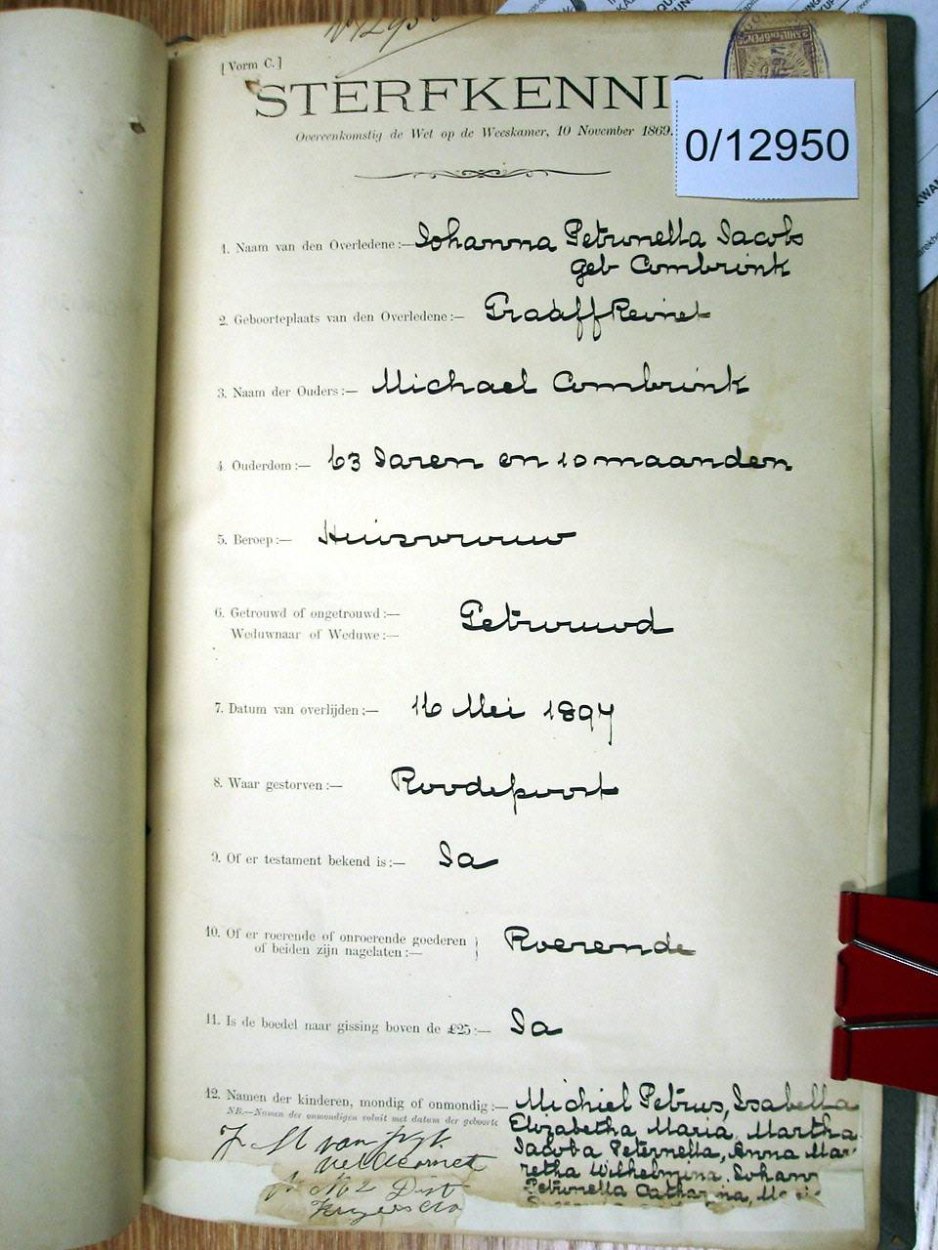 No 12950
[Vorm C.]
STERFKENNIS
Overeenkomstig de Wet op de Weeskamer, 10 November 1869.
0/12950
1. Naam van den Overledene:— Johanna Petronella Jacobs
geb Combrink
2. Geboorteplaats van den Overledene:— Graaff Reinet
3. Naam der Ouders:— Michael Combrink
4. Ouderdom:— 63 Jaren en 10 maanden
5. Beroep:— Huisvrouw
6. Getrouwd of ongetrouwd:—
Weduwnaar of Weduwe:— Getrouwd
7. Datum van overlijden:— 16 Mei 1897
8. Waar gestorven:— Roodepoort
9. Of er testament bekend is:— Ja
10. Of er roerende of onroerende goederen
of beiden zijn nagelaten:— Roerende
11. Is de boedel naar gissing boven de £25:— Ja
12. Namen der kinderen, mondig of onmondig:— Michiel Petrus, Isabella
NB.—Namen der onmondigen voluit met datum der geboorte
Elizabetha Maria, Martha
Jacoba Peternella, Anna Mar
retha Wilhelmina, Johan
Petronella Catharina,
van Wyk
Veldcornet
Dist